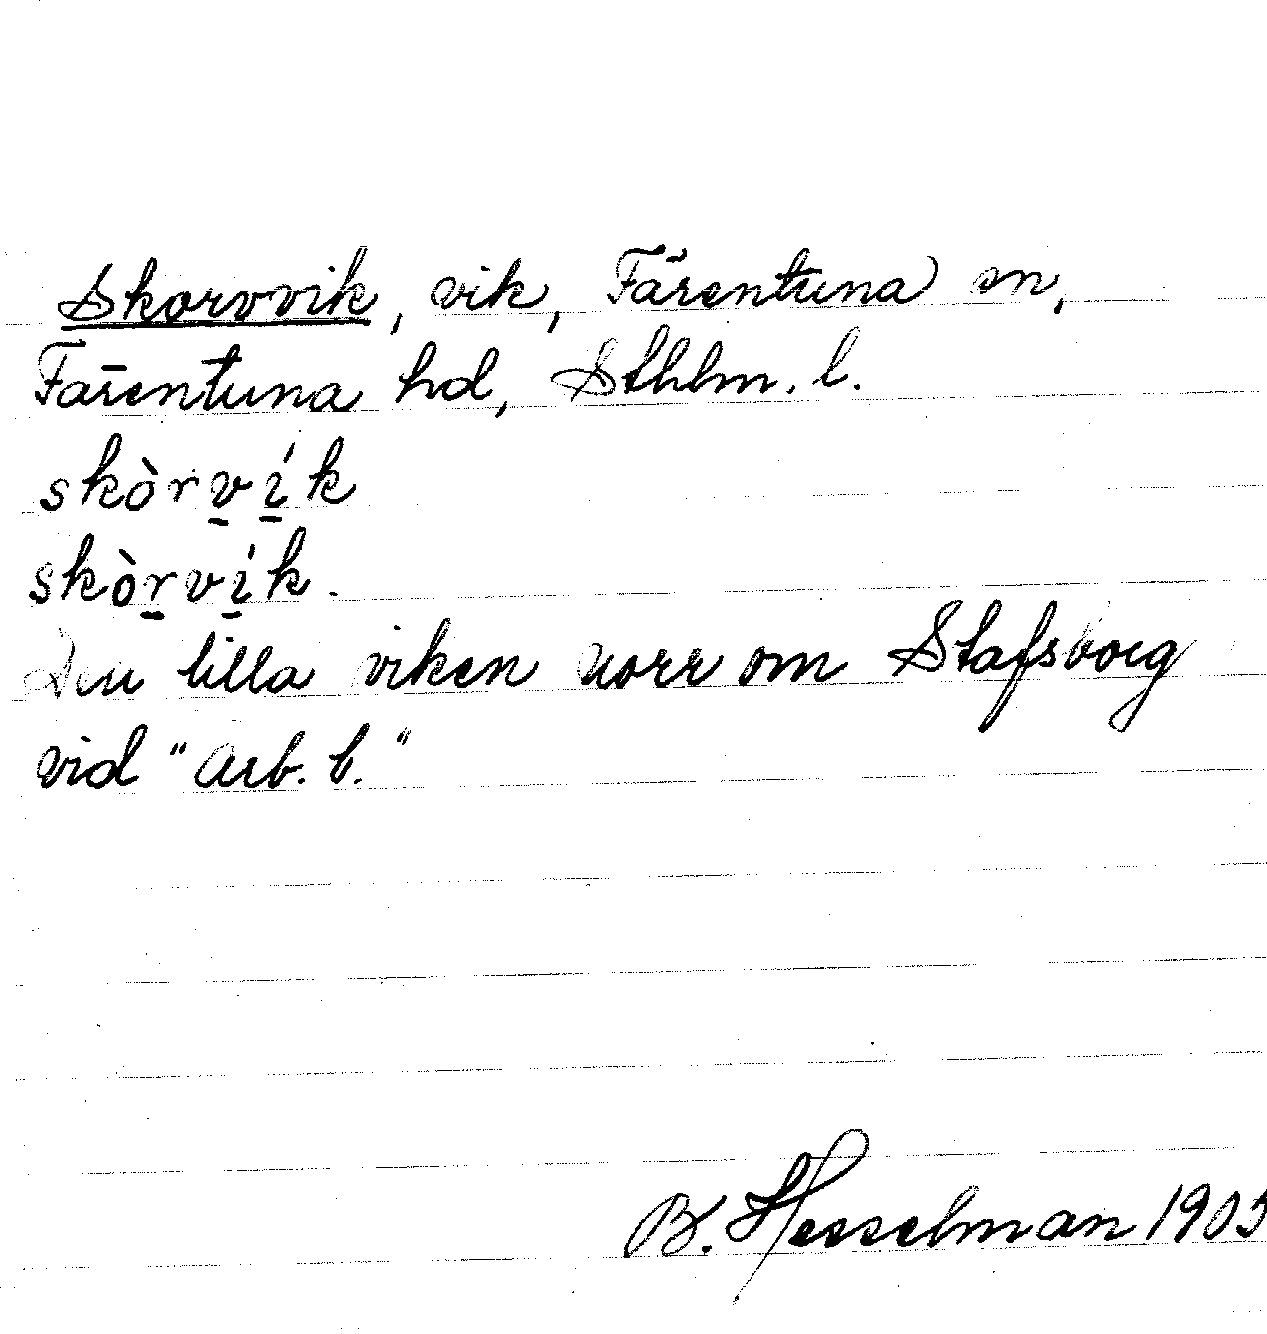 Skorvvik, vik, Färentuna sn,
Färentuna hd, Sthlm. l.
skòrv̲í̲k
skòr̲ví̲k.
Den lilla viken norr om Stafsborg
vid "Arb. b."
B. Hesselman